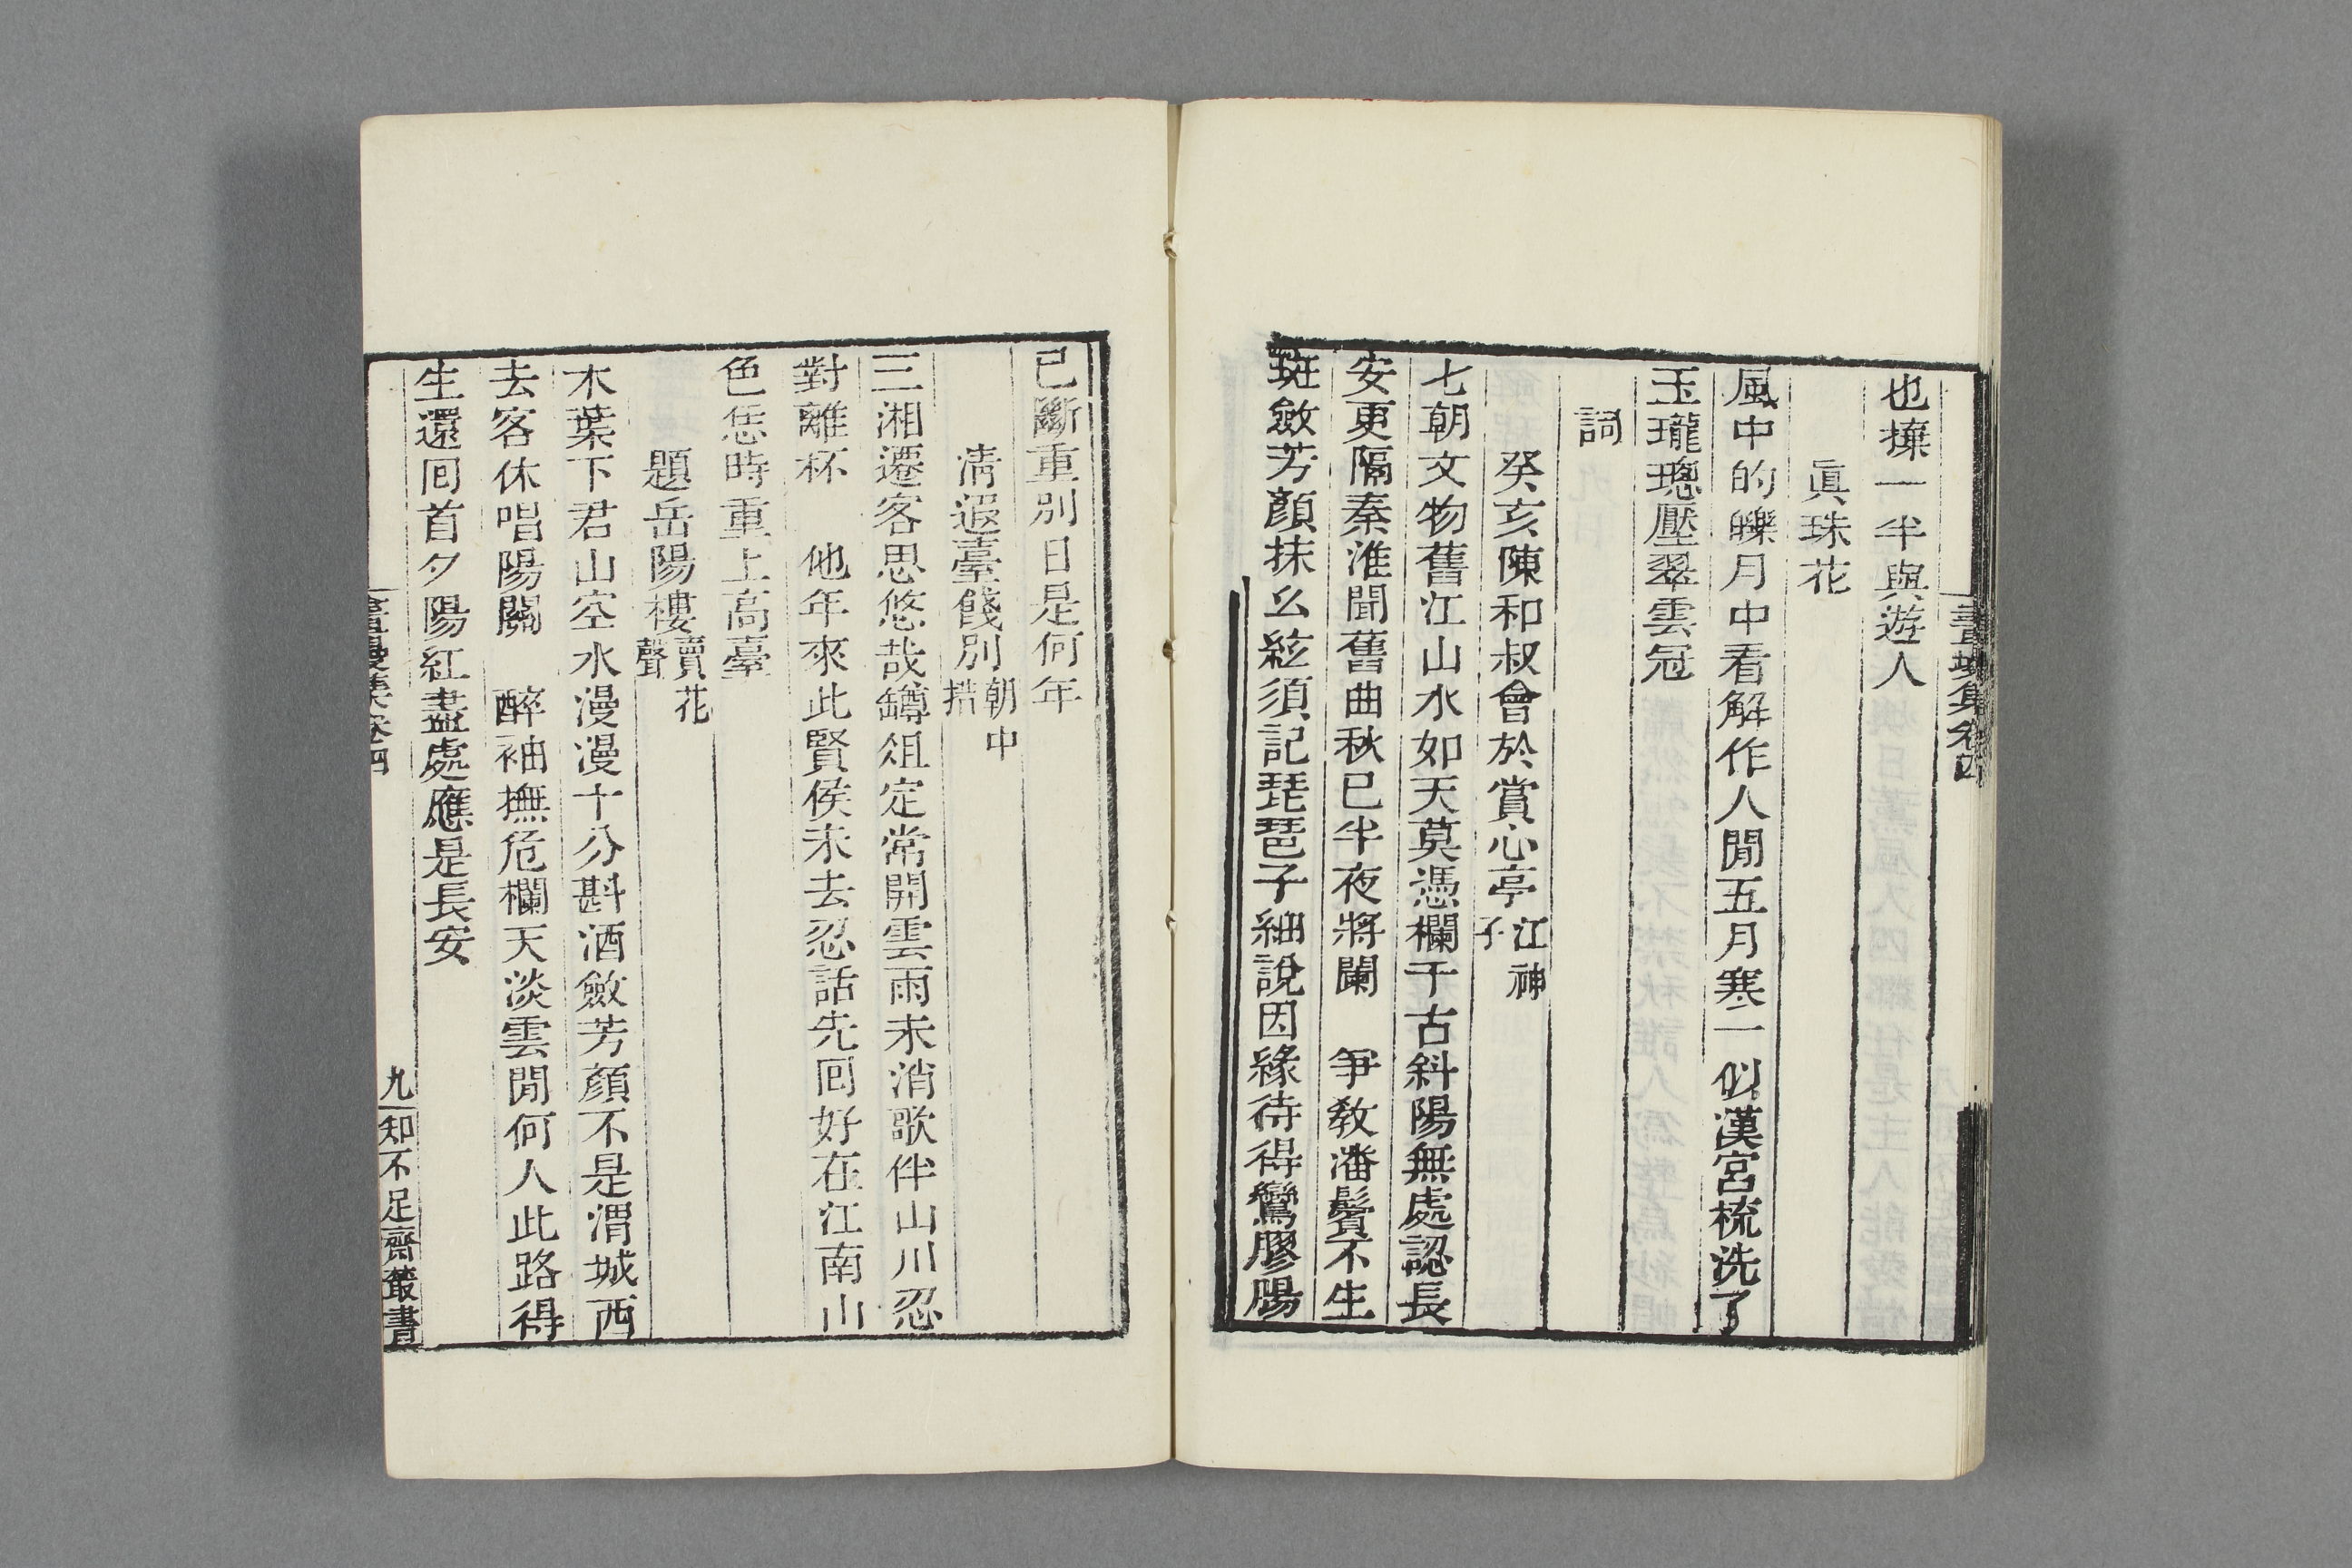 畫墁集卷四
也㨿一半與遊人
眞珠花
風中的皪月中看解作人閒五月寒一似漢宮梳洗了
玉瓏璁壓翠雲冠
詞
癸亥陳和叔會於賞心亭江神子
七朝文物舊江山水如天莫憑欄千古斜陽無處認長
安更隔秦淮聞舊曲秋巳半夜將闌　爭敎潘鬢不生
斑斂芳顏抹幺絃須記琵琶子細說因緣待得鸞膠腸
已斷重別日是何年
淸遐臺餞別朝中措
三湘遷客思悠哉罇俎定常開雲雨未消歌伴山川忍
對離杯　他年來此賢侯未去忍話先回好在江南山
色恁時重上高臺
題岳陽樓賣花聲
木葉下君山空水漫漫十分斟酒斂芳顏不是渭城西
去客休唱陽關　醉袖撫危欄天淡雲閒何人此路得
生還回首夕陽紅盡處應是長安
畫墁集卷四
九
知不足齋叢書